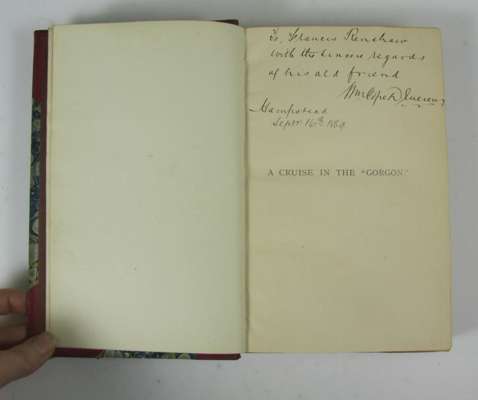 To Francis Renshaw
with the sincere regards
of his old friend
Wm Cope Devereux
Hampstead
Septr 16th 1869
A CRUISE IN THE "GORGON."